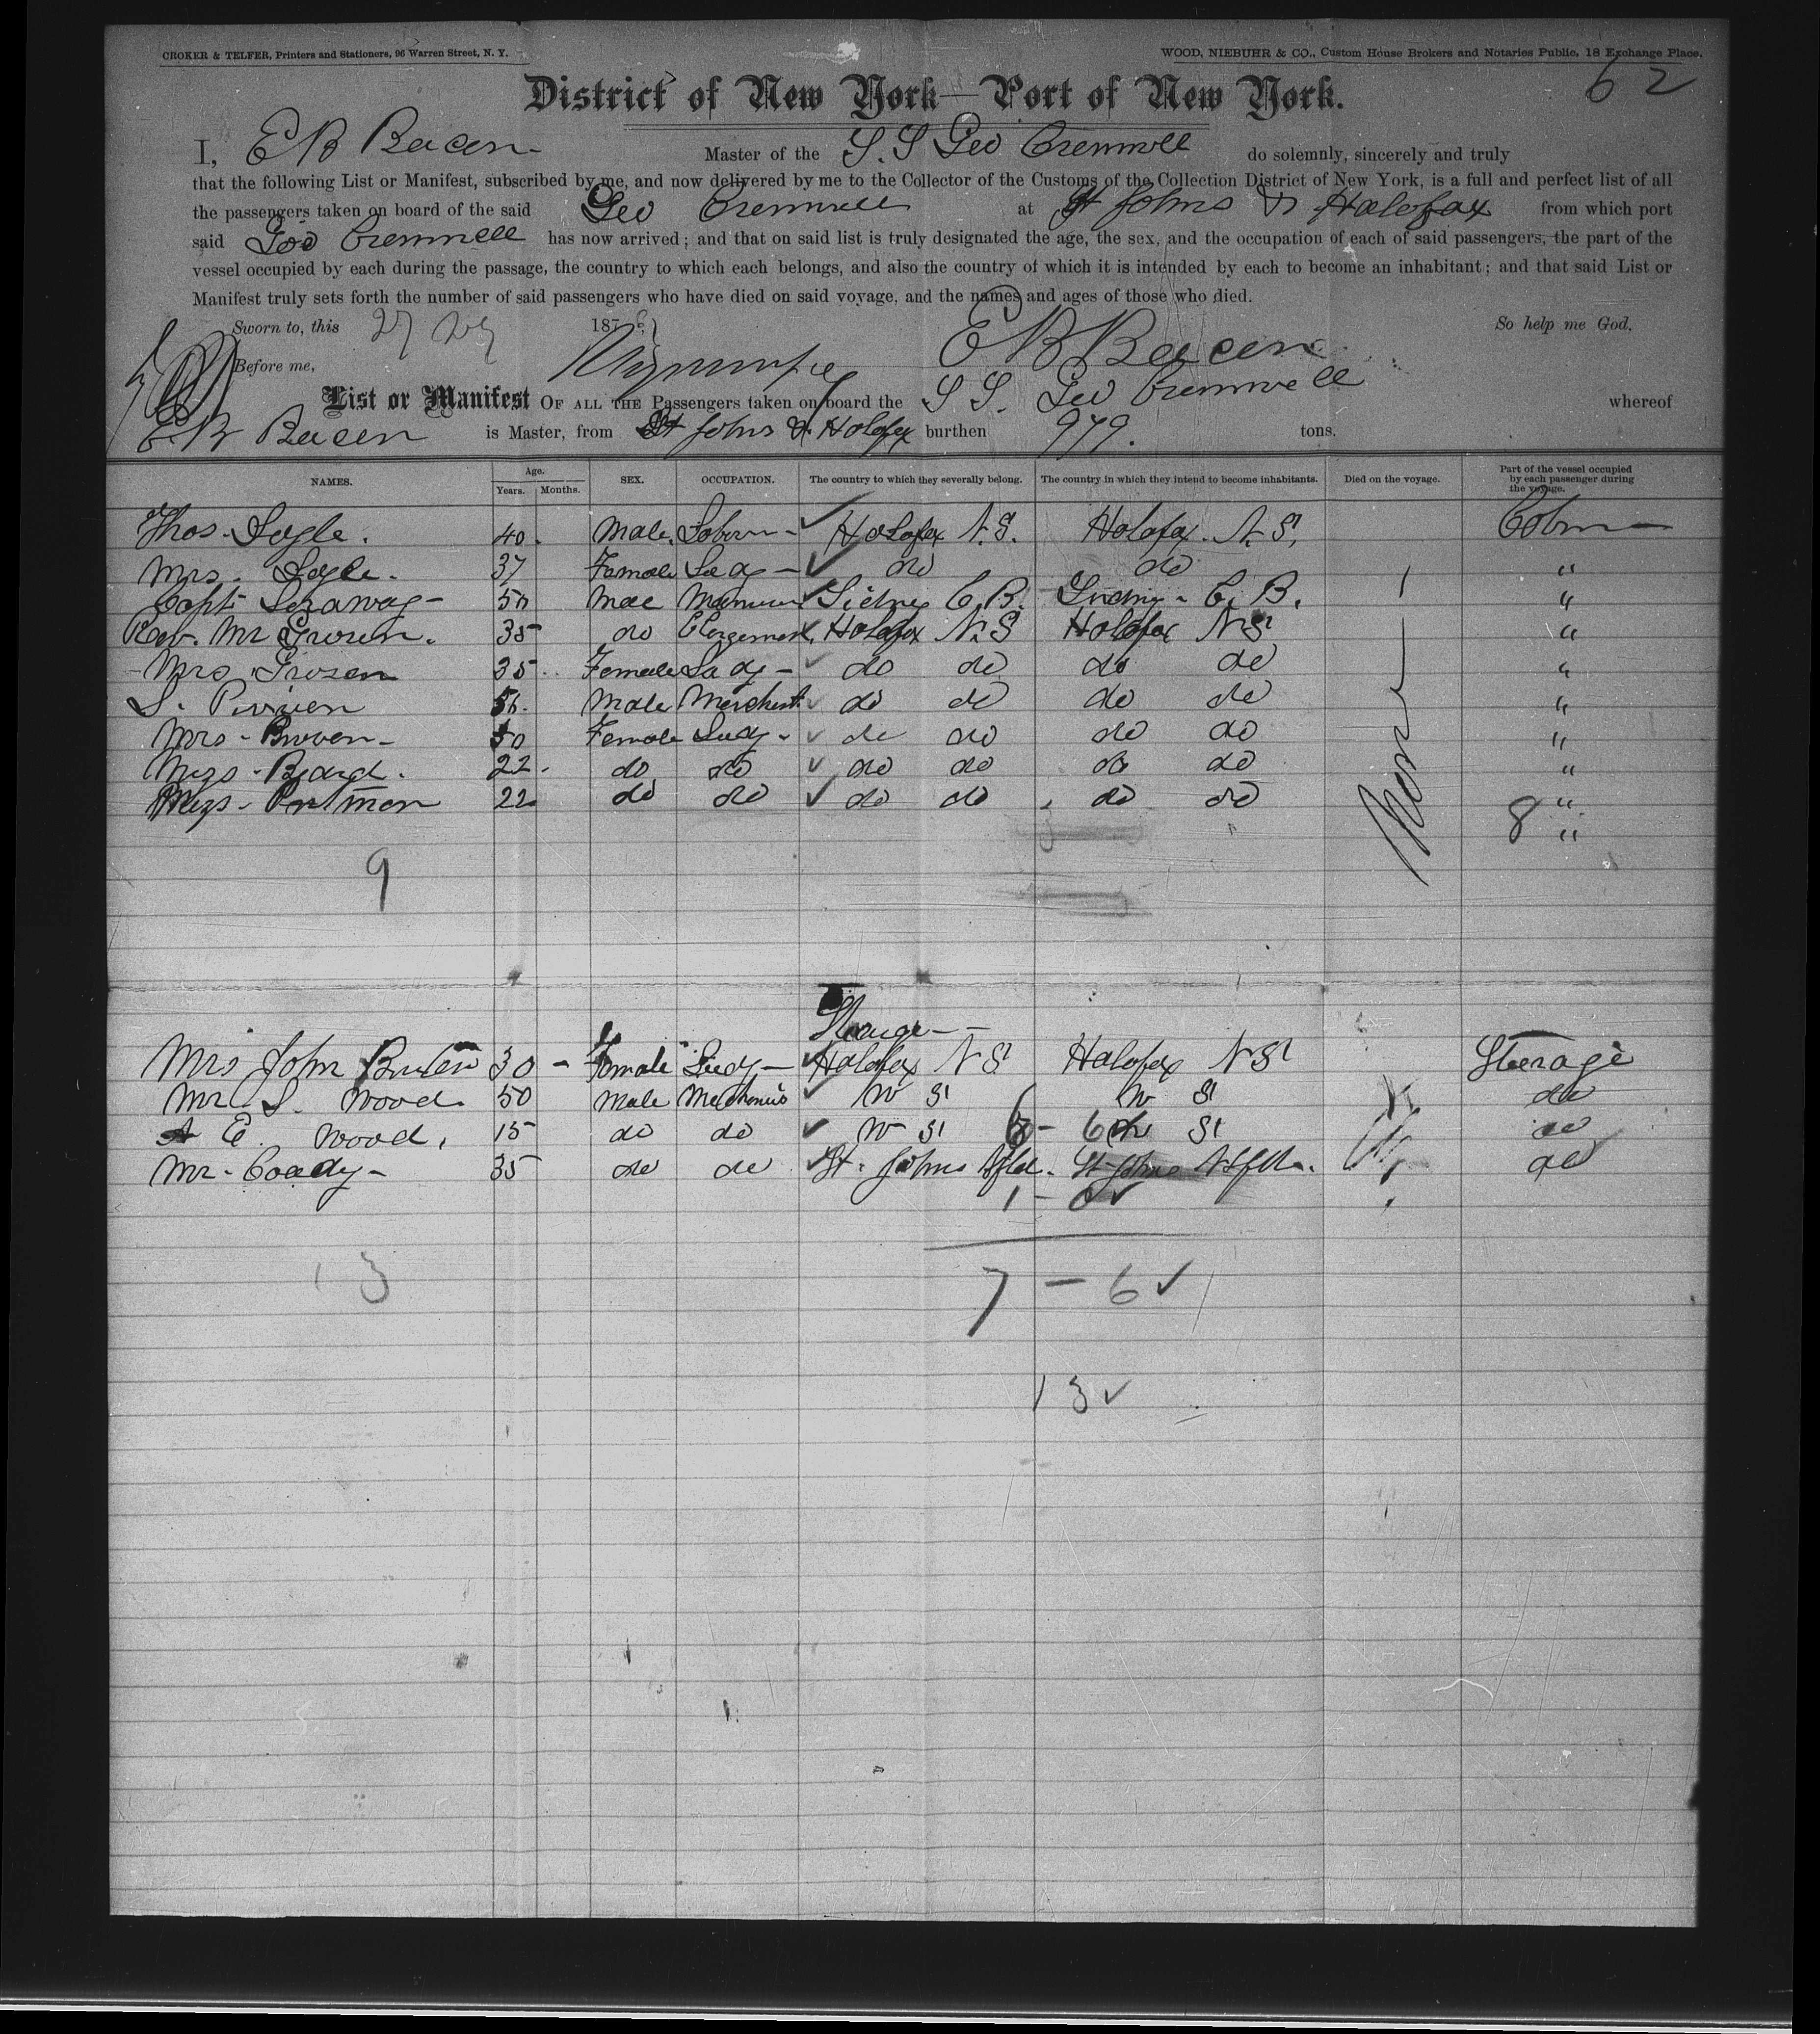 CROKER & TELFER, Printers and Stationers, 96 Warren Street, N. Y.
WOOD, NIEBUHR & CO., Custom House Brokers and Notaries Public, 18 Exchange Place.
62
District of New York—Port of New York.
I, E B Bacon Master of the S. S Geo Cromwell do solemnly, sincerely and truly
that the following List or Manifest, subscribed by me, and now delivered by me to the Collector of the Customs of the Collection District of New York, is a full and perfect list of all
the passengers taken on board of the said Geo Cromwell at St Johns & Halofax from which port
said Geo Cromwell has now arrived; and that on said list is truly designated the age, the sex, and the occupation of each of said passengers, the part of the
vessel occupied by each during the passage, the country to which each belongs, and also the country of which it is intended by each to become an inhabitant; and that said List or
Manifest truly sets forth the number of said passengers who have died on said voyage, and the names and ages of those who died.
Sworn to, this 27 187 So help me God.
Before me, E B Bacon
List or Manifest OF ALL THE Passengers taken on board the S S. Geo Cromwell whereof
E. B Bacon is Master, from St Johns & Holofax burthen 979. tons.
NAMES. Age. Years. Months. SEX. OCCUPATION. The country to which they severally belong. The country in which they intend to become inhabitants. Died on the voyage. Part of the vessel occupied by each passenger during the voyage.
Thos. 40. Male. Halofax N.S. Holofax. N.S.
Mrs. 37 Female Lady do do "
Capt 50 Sidney C.B. C.B. "
Rev. Mr 35 do Clergeman Holofax N.S Holofax NS "
Mrs 35 Female Lady do do do do "
S. Male Merchent do do do do "
Mrs 30 Female Lady do do do do "
Miss 22. do do do do do do "
Miss Portman 22 do do do do do do "
None
8 "
9
Mrs John 30 Female Lady Halofax N S Halofax N S Steerage
Mr S. Wood 50 Male Mechanic N S N S do
A E. Wood. 15 do do N S 6 - 6 S do
Mr. Coady 35 do do St. Johns Nfld. St Johns Nfld. do
1 - 0
13
7 - 6 ✓
13 ✓